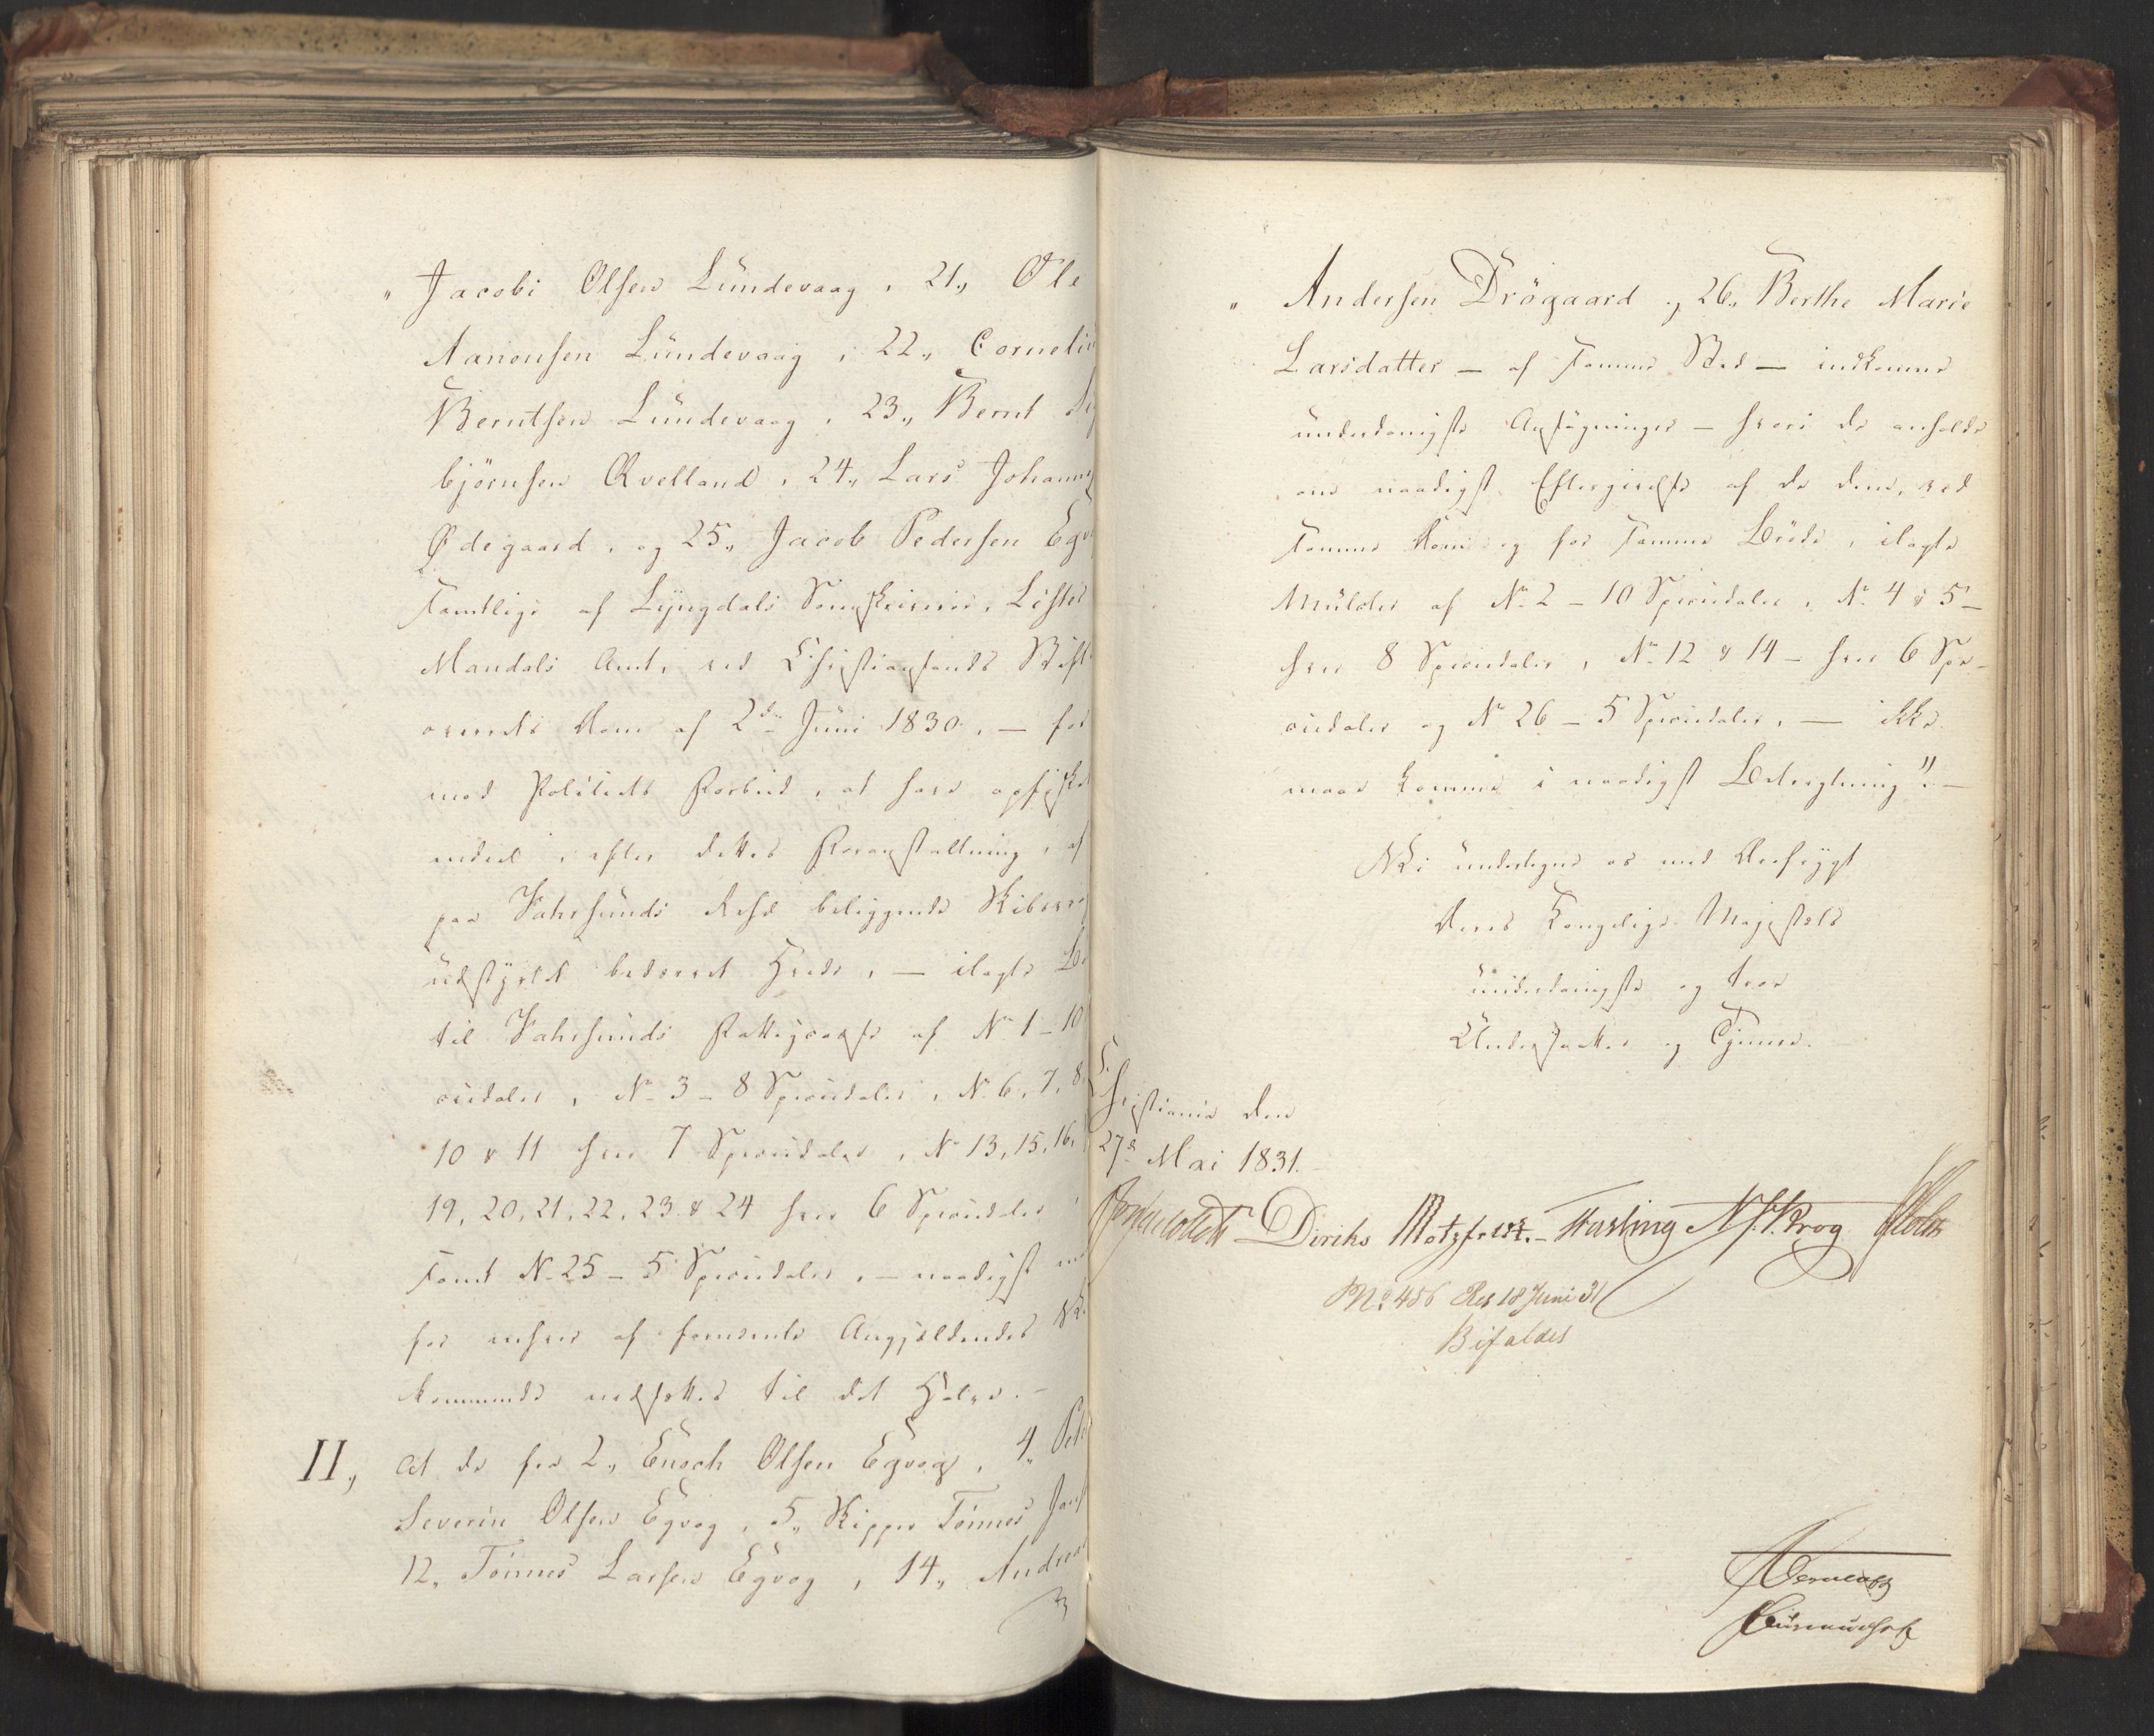 " Jacobi Olsen Lündevaag, 21., Ole
Aanensen Lündevaag, 22., Corneliu
Berntsen Lündevaag, 23., Bernt
björnsen Qvelland, 24., Lars Johann
Ødegaard, og 25., Jacob Pedersen Egv
samtlige af Lyngdals Sorenskriverie, Lister
Mandals Amt, ved Christiansands Stift
overrets Dom af 2den Juni 1830, — for
mod Politiets Forbud, at have opfisket
endeel, efter dettes Foranstaltning, af
paa Fahrsunds Rehd beliggende Skibe
udstyrtet bedærvet Hvede, — ilagte
til Fahrsunds Fattigcasse af No 1 – 10
ciedaler, No 3 – 8 Speciedaler, No 6, 7, 8
10 & 11 hver 7 Speciedaler, No 13, 15, 16,
19, 20, 21, 22, 23 & 24 hver 6 Speciedaler
samt No 25 – 5 Speciedaler, — naadigst
for enhver af fornævnte Angjældendes
kommende nedsættes til det Halve. —
II., At de fra 2., Enoch Olsen Egvog, 4., Pet
Severin Olsen Egvog, 5., Skipper Tönnes
12., Tönnes Larsen Egvog, 14., Andreas
" Andersen Drögaard, 26., Berthe Marie
Larsdatter — af samme Sted — indkomne
underdanigste Ansøgninger — hvori de anholde
om naadigst Eftergivelse af de dem, ved
samme Dom og for samme Brøde, ilagte
Mulcter af No 2 – 10 Speciedaler, No 4 & 5 –
hver 8 Speciedaler, No 12 & 14 – hver 6 Spe-
ciedaler og No 26 – 5 Speciedaler, — ikke
maae komme i naadigst Betragtning". —
Vi undertegne os med Ærefrygt
Deres Kongelige Majestæts
underdanigste og troe
Undersaatter og Tjenere.
Christiania den
27de Mai 1831.
Diriks Motzfeldt. – Fasting N. J. Krog Holst
No 456 Res 18 Juni 31
Bifaldes